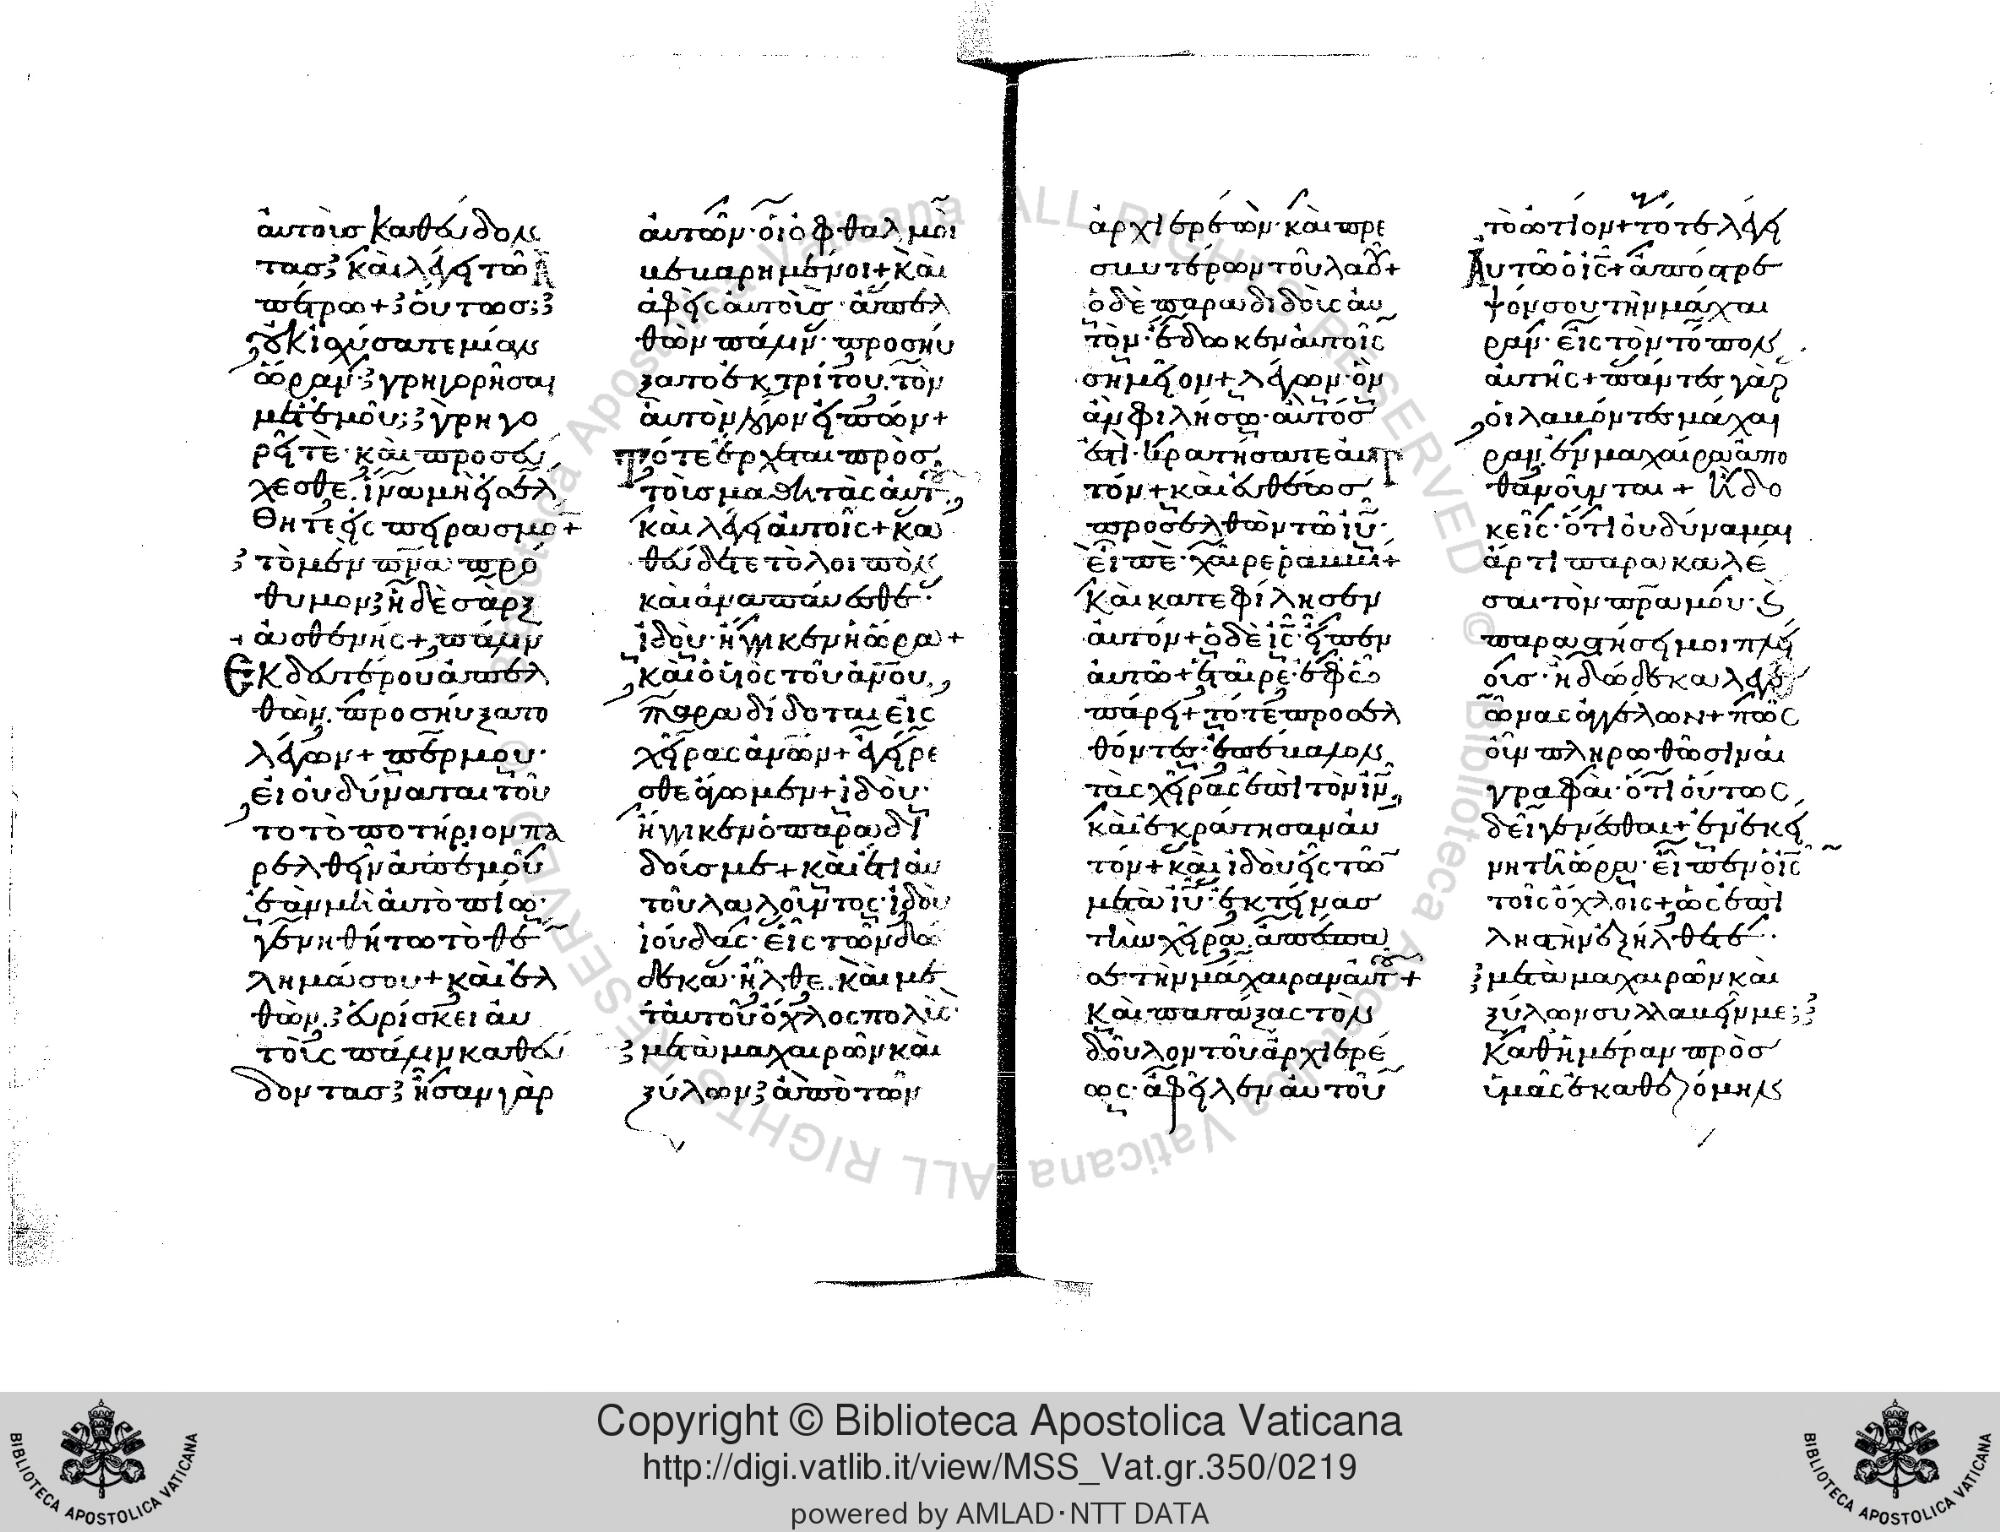 αὐτοὺς καθεύδον
τας· καὶ λέγει τῶ
πέτρω + οὕτως;
οὐκ ἰσχύσατε μίαν
ὥραν· γρηγορῆσαι
μετ' ἐμοῦ; γρηγο
ρεῖτε· καὶ προσεύ
χεσθε. ἵνα μὴ εἰσέλ
θητε εἰς πειρασμο +
τὸ μὲν πνα πρό
θυμον ἡ δὲ σὰρξ
ἀσθενής + πάλιν
Ἐκ δευτέρου ἀπελ
θὼν. προσηύξατο
λέγων + πέρ μου·
εἰ οὐ δύναται τοῦ
το τὸ ποτήριον πα
ρελθεῖν ἀπ' ἐμοῦ
ἐὰν μὴ αὐτὸ πίω·
γενηθήτω τὸ θέ
λημά σου + καὶ ἐλ
θὼν. εὑρίσκει αὐ
τοὺς πάλιν καθεύ
δοντας ἦσαν γὰρ
αὐτῶν· οἱ ὀφθαλμοὶ
βεβαρημένοι + καὶ
ἀφεὶς αὐτοὺς· ἀπελ
θὼν πάλιν· προσηύ
ξατο ἐκ τρίτου. τὸν
αὐτὸν λόγον εἰπών +
Τότε ἔρχεται πρὸς
τοὺς μαθητὰς αὐτ
καὶ λέγει αὐτοῖς + κα
θεύδετε τὸ λοιπὸν
καὶ ἀναπαύεσθε·
ἰδοὺ· ἤγγικεν ἡ ὥρα +
καὶ ὁ υἱὸς τοῦ ανου,
παραδίδοται εἰς
χεῖρας ανων + ἐγείρε
σθε ἄγωμεν + ἰδοὺ·
ἤγγικεν ὁ παραδι
δούς με + καὶ ἔτι αὐ
τοῦ λαλοῦντος· ἰδοὺ
ἰούδας· εἷς τῶν δώ
δεκα· ἦλθε. καὶ με
τ' αὐτοῦ ὄχλος πολὺς·
μετὰ μαχαιρῶν καὶ
ξύλων ἀπὸ τῶν
ἀρχιερέων· καὶ πρε
σβυτέρων τοῦ λαοῦ +
ὁ δὲ παραδιδοὺς αὐ
τὸν· ἔδωκεν αὐτοῖς
σημεῖον + λέγων· ὃν
ἂν φιλήσω· αὐτός
ἐστι· κρατήσατε αὐ
τόν + καὶ εὐθέως
προσελθὼν τῶ ιυ·
εἶπε· χαῖρε ῥαββί +
καὶ κατεφίλησεν
αὐτόν + ὁ δὲ ις· εἶπεν
αὐτῶ + ἑταῖρε· ἐφ' ὧ
πάρει + τότε προσελ
θόντες· ἐπέβαλον
τὰς χεῖρας ἐπὶ τὸν ιν,
καὶ ἐκράτησαν αὐ
τόν + καὶ ἰδοὺ εἷς τῶ
μετὰ ιυ· ἐκτείνας
τὴν χεῖρα. ἀπέσπα
σε τὴν μάχαιραν αὐτ +
καὶ πατάξας τὸν
δοῦλον τοῦ ἀρχιερέ
ως· ἀφεῖλεν αὐτοῦ
τὸ ὠτίον + τότε λέγει
Αὐτῶ ὁ ις + ἀπόστρε
ψόν σου τὴν μάχαι
ραν· εἰς τὸν τόπον
αὐτῆς + πάντες γὰρ
οἱ λαβόντες μάχαι
ραν. ἐν μαχαίρα ἀπο
θανοῦνται + ἢ δο
κεῖς· ὅτι οὐ δύναμαι
ἄρτι παρακαλέ
σαι τὸν πρα μου· καὶ
παραστήσει μοι πλεί
ους· ἢ δώδεκα λεγε
ῶνας ἀγγέλων + πῶς
οὖν πληρωθῶσιν αἱ
γραφαὶ· ὅτι οὕτως
δεῖ γενέσθαι + ἐν ἐκεί
νη τῆ ὥρα· εἶπεν ὁ ις
τοῖς ὄχλοις + ὡς ἐπὶ
ληστὴν ἐξήλθετε·
μετὰ μαχαιρῶν καὶ
ξύλων συλλαβεῖν με;
καθ' ἡμέραν πρὸς
ὑμᾶς ἐκαθεζόμην
ALL RIGHTS RESERVED © Biblioteca Apostolica Vaticana
Copyright © Biblioteca Apostolica Vaticana
http://digi.vatlib.it/view/MSS_Vat.gr.350/0219
powered by AMLAD·NTT DATA
BIBLIOTECA APOSTOLICA VATICANA
BIBLIOTECA APOSTOLICA VATICANA